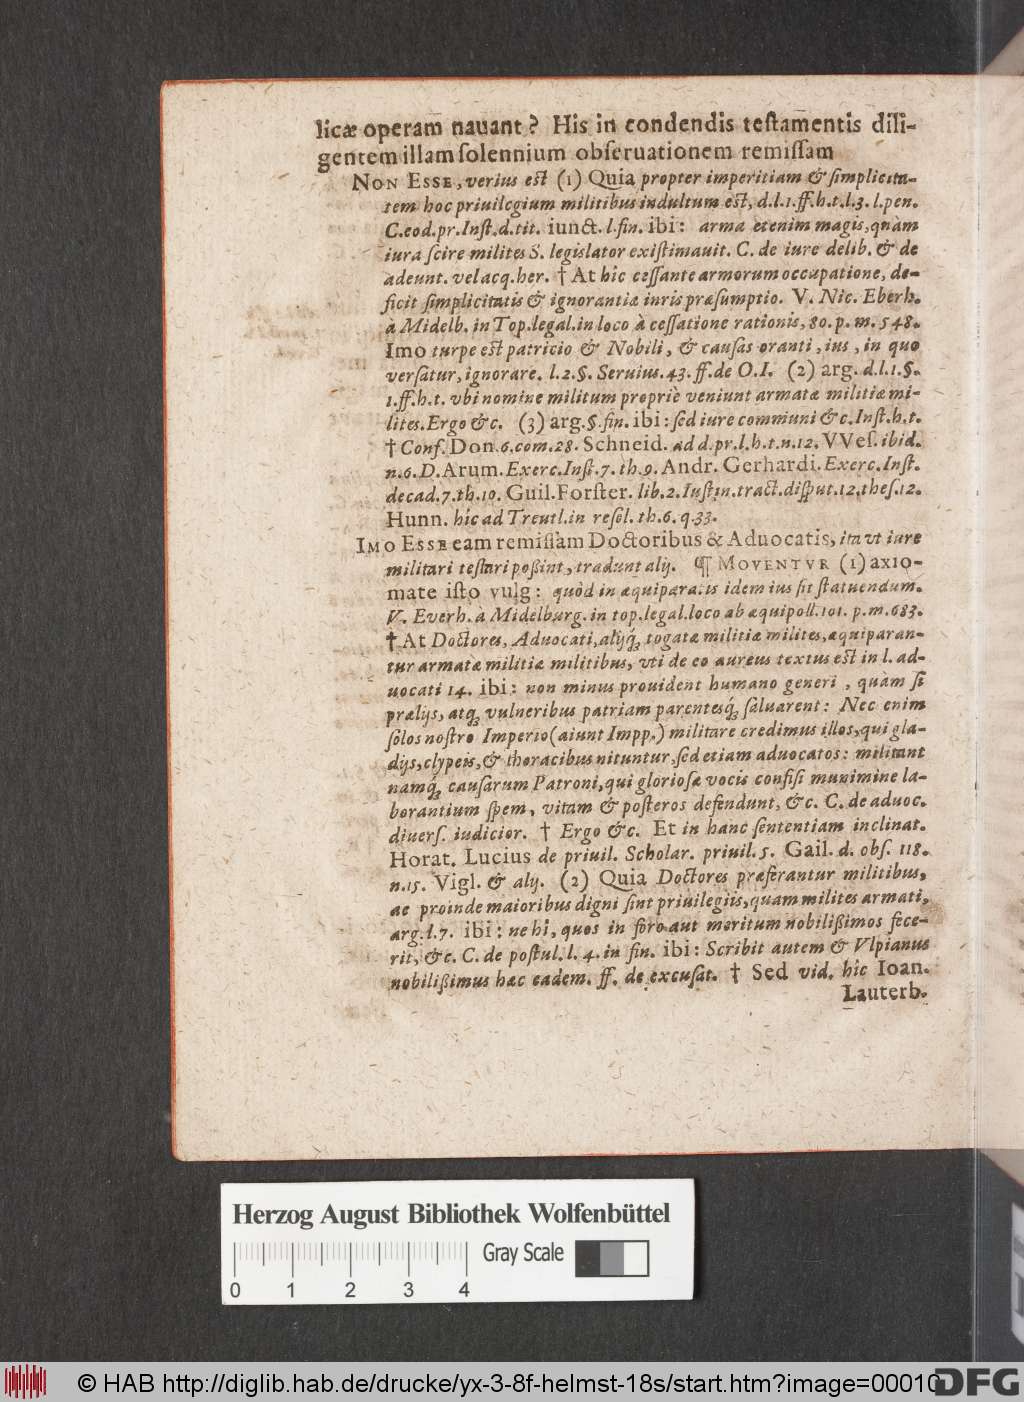 licæ operam nauant? His in condendis testamentis dili-
gentem illam solennium obseruationem remissam
NON ESSE, verius est (1) Quia propter imperitiam & simplicita-
tem hoc priuilegium militibus indultum est, d.l.1.ff.h.t.l.3. l.pen.
C.eod.pr.Inst.d.tit. iunct. l.fin. ibi: arma etenim magis, quàm
iura scire milites S. legislator existimauit. C. de iure delib. & de
adeunt. vel acq. her. † At hic cessante armorum occupatione, de-
ficit simplicitatis & ignorantiæ iuris præsumptio. V. Nic. Eberh.
à Midelb. in Top.legal.in loco à cessatione rationis, 80. p. m. 548.
Imo turpe est patricio & Nobili, & causas oranti, ius, in quo
versatur, ignorare. l.2.§. Seruius.43. ff.de O.I. (2) arg. d.l.1.§.
1.ff.h.t. vbi nomine militum propriè veniunt armatæ militiæ mi-
lites. Ergo &c. (3) arg.§.fin. ibi: sed iure communi &c. Inst.h.t.
† Conf. Don.6.com.28. Schneid. ad d.pr.l.h.t.n.12. VVes. ibid.
n.6. D. Arum. Exerc.Inst.7. th.9. Andr. Gerhardi. Exerc.Inst.
decad.7.th.10. Guil. Forster. lib.2. Iustin.tract.disput.12.thes.12.
Hunn. hic ad Treutl.in resol. th.6. q.33.
IMO ESSE eam remissam Doctoribus & Aduocatis, ita vt iure
militari testari poßint, tradunt alij. ¶ MOVENTVR (1) axio-
mate isto vulg: quòd in æquiparatis idem ius sit statuendum.
V. Everh. à Midelburg. in top.legal.loco ab æquipoll.101. p.m.683.
† At Doctores, Aduocati, alijq́; togatæ militiæ milites, æquiparan-
tur armatæ militiæ militibus, vti de eo aureus textus est in l. ad-
uocati 14. ibi: non minus prouident humano generi, quàm si
prælijs, atq; vulneribus patriam parentesq́; saluarent: Nec enim
solos nostro Imperio (aiunt Impp.) militare credimus illos, qui gla-
dijs, clypeis, & thoracibus nituntur, sed etiam aduocatos: militant
namq́; causarum Patroni, qui gloriosæ vocis confisi munimine la-
borantium spem, vitam & posteros defendunt, &c. C. de aduoc.
diuers. iudicior. † Ergo &c. Et in hanc sententiam inclinat.
Horat. Lucius de priuil. Scholar. priuil.5. Gail. d. obs. 118.
n.15. Vigl. & alij. (2) Quia Doctores præferantur militibus,
ac proinde maioribus digni sint priuilegiis, quam milites armati,
arg.l.7. ibi: ne hi, quos in foro aut meritum nobilißimos fece-
rit, &c. C. de postul. l. 4. in fin. ibi: Scribit autem & Vlpianus
nobilißimus hac eadem. ff. de excusat. † Sed vid. hic Ioan.
Lauterb.
Herzog August Bibliothek Wolfenbüttel
Gray Scale
0 1 2 3 4
© HAB http://diglib.hab.de/drucke/yx-3-8f-helmst-18s/start.htm?image=00010
DFG